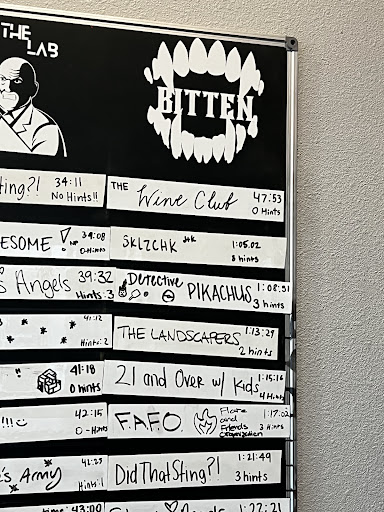 THE
LAB
BITTEN
ting?! 34:11
No Hints!!
THE Wine Club 47:53
0 Hints
ESOME! 34:08
0-Hints
SKLZCHK 1:05.02
8 hints
s Angels 39:32
Hints: 3
Detective PIKACHUS 1:08:31
3 hints
41:12
Hints: 2
THE LANDSCAPERS 1:13:29
2 hints
41:18
0 hints
21 and Over w/ Kids 1:15:16
4 Hints
!!! 42:15
0-Hints
F.A.F.O. Flare and Friends Organization 1:17:02
3 Hints
e's Army 42:25
Hints: 1
DidThatSting?! 1:21:49
3 hints
time: 43:00
1:22:21